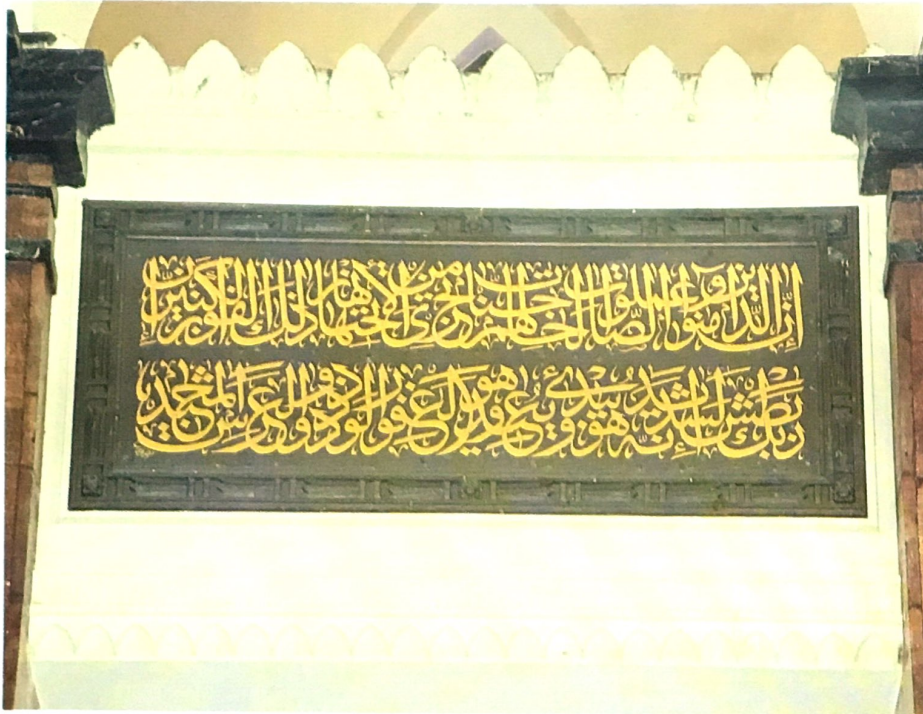 إن الذين آمنوا وعملوا الصالحات لهم جنات تجري من تحتها الأنهار ذلك الفوز الكبير إن
بطش ربك لشديد إنه هو يبدئ ويعيد وهو الغفور الودود ذو العرش المجيد